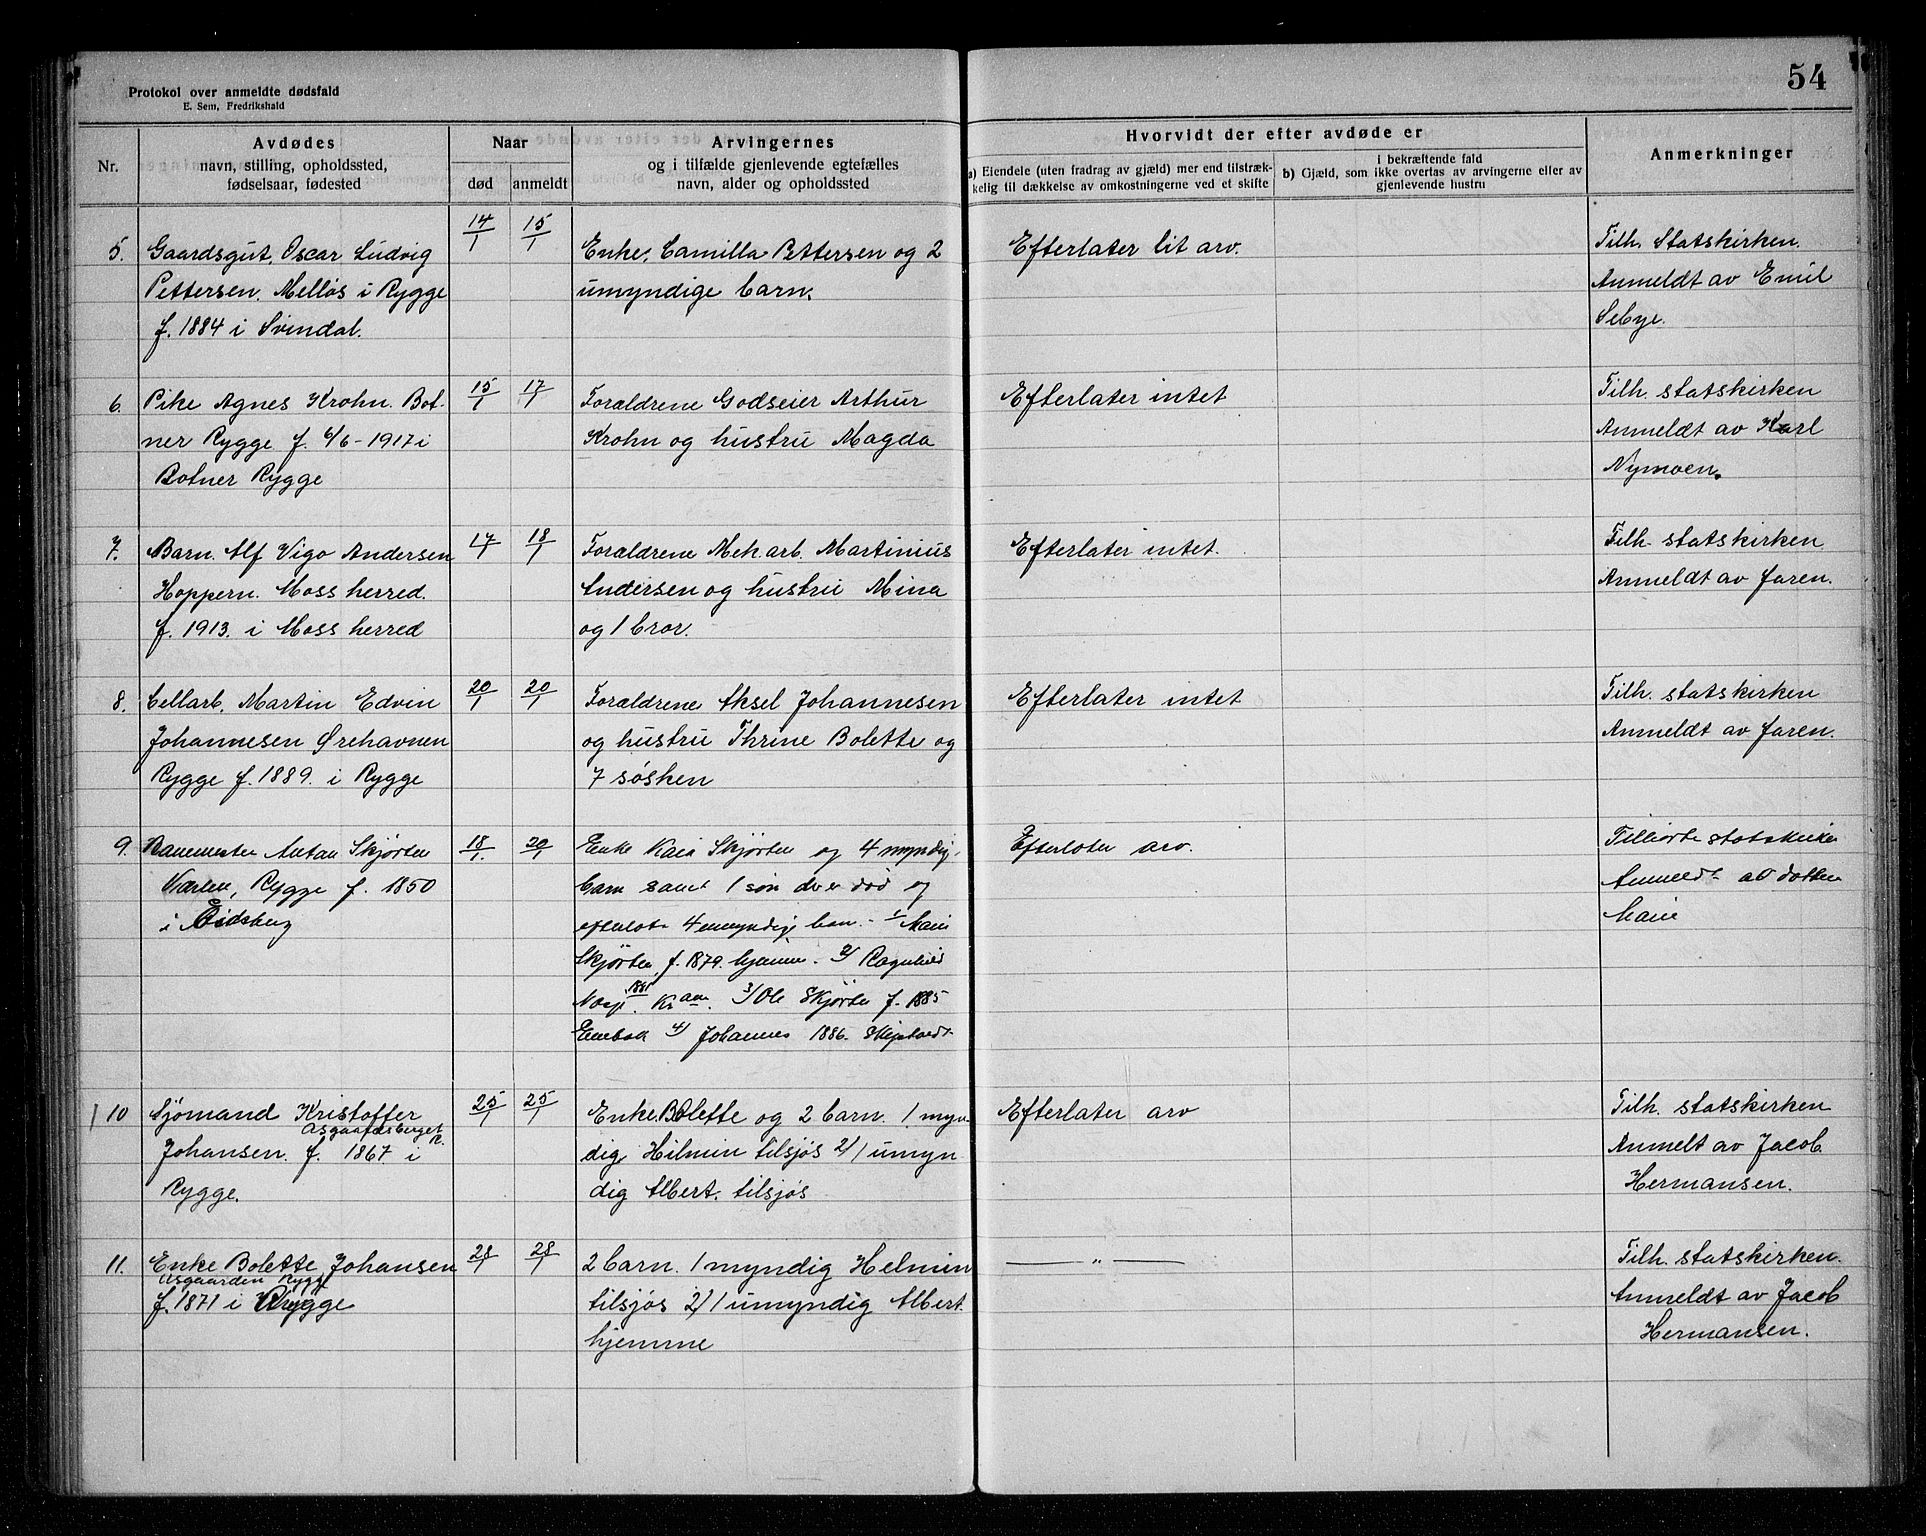 54
Protokol over anmeldte dødsfald
E. Sem, Fredrikshald
Nr.
Avdødes
navn, stilling, opholdssted,
fødselsaar, fødested
Naar
død
anmeldt
Arvingernes
og i tilfælde gjenlevende egtefælles
navn, alder og opholdssted
Hvorvidt der efter avdøde er
a) Eiendele (uten fradrag av gjæld) mer end tilstræk-
kelig til dækkelse av omkostningerne ved et skifte
i bekræftende fald
b) Gjæld, som ikke overtas av arvingerne eller av
gjenlevende hustru
Anmerkninger
5. Gaardsgut, Oscar Ludvig
Pettersen. Melløs i Rygge
f. 1884 i Svindal.
14/1
15/1
Enke, Camilla Pettersen og 2
umyndige barn.
Efterlater lit arv.
Tilh. Statskirken.
Anmeldt av Emil
Sebye.
6. Pike Agnes Krohn. Bot-
ner Rygge f. 6/6-1917 i
Botner Rygge
15/1
17/1
Forældrene Godseier Arthur
Krohn og hustru Magda
Efterlater intet
Tilh. statskirken
Anmeldt av Karl
Nymoen.
7. Barn. Alf Vigo Andersen
Hoppern. Moss herred.
f. 1913. i Moss herred
17/1
18/1
Forældrene Mek. arb. Martinius
Andersen og hustru Mina
og 1 bror.
Efterlater intet.
Tilh. statskirken
Anmeldt av faren.
8. Cellarb. Martin Edvin
Johannesen Ørehavnen
Rygge f. 1889. i Rygge
20/1
20/1
Forældrene Aksel Johannesen
og hustru Thrine Bolette og
7 søsken
Efterlater intet
Tilh. statskirken
Anmeldt av faren.
9. Banemester Anton Skjørten
Varlen, Rygge f. 1850
i Eidsberg
18/1.
20/1
Enke Kaia Skjørten og 4 myndig.
barn samt 1 søn der er død og
efterlot 4 umyndige barn. 1/ Marie
Skjørten f. 1879. hjemme. 2/ Ragnhild
1881 Kr.a. 3/ Ole Skjørten f. 1885
4/ Johannes 1886.
Efterlater arv.
Tilhørte statskirken
Anmeldt av datter
Marie
10 Sjømand Kristoffer
Asgaardsberget R.
Johansen. f. 1867 i
Rygge.
25/1
25/1
Enke. Bolette og 2 barn. 1 myn-
dig Hilmin tilsjøs 2/ 1 umyn
dig Albert. tilsjøs
Efterlater arv
Tilh. statskirken
Anmelt av Jacob
Hermansen.
11. Enke Bolette Johansen
Asgaarden Rygge
f. 1871 i Rygge
28/1
28/1
2 barn. 1 myndig Helmin
tilsjøs 2/ 1 umyndig Albert
hjemme
— " —
Tilh. statskirken.
Anmeldt av Jacob
Hermansen.